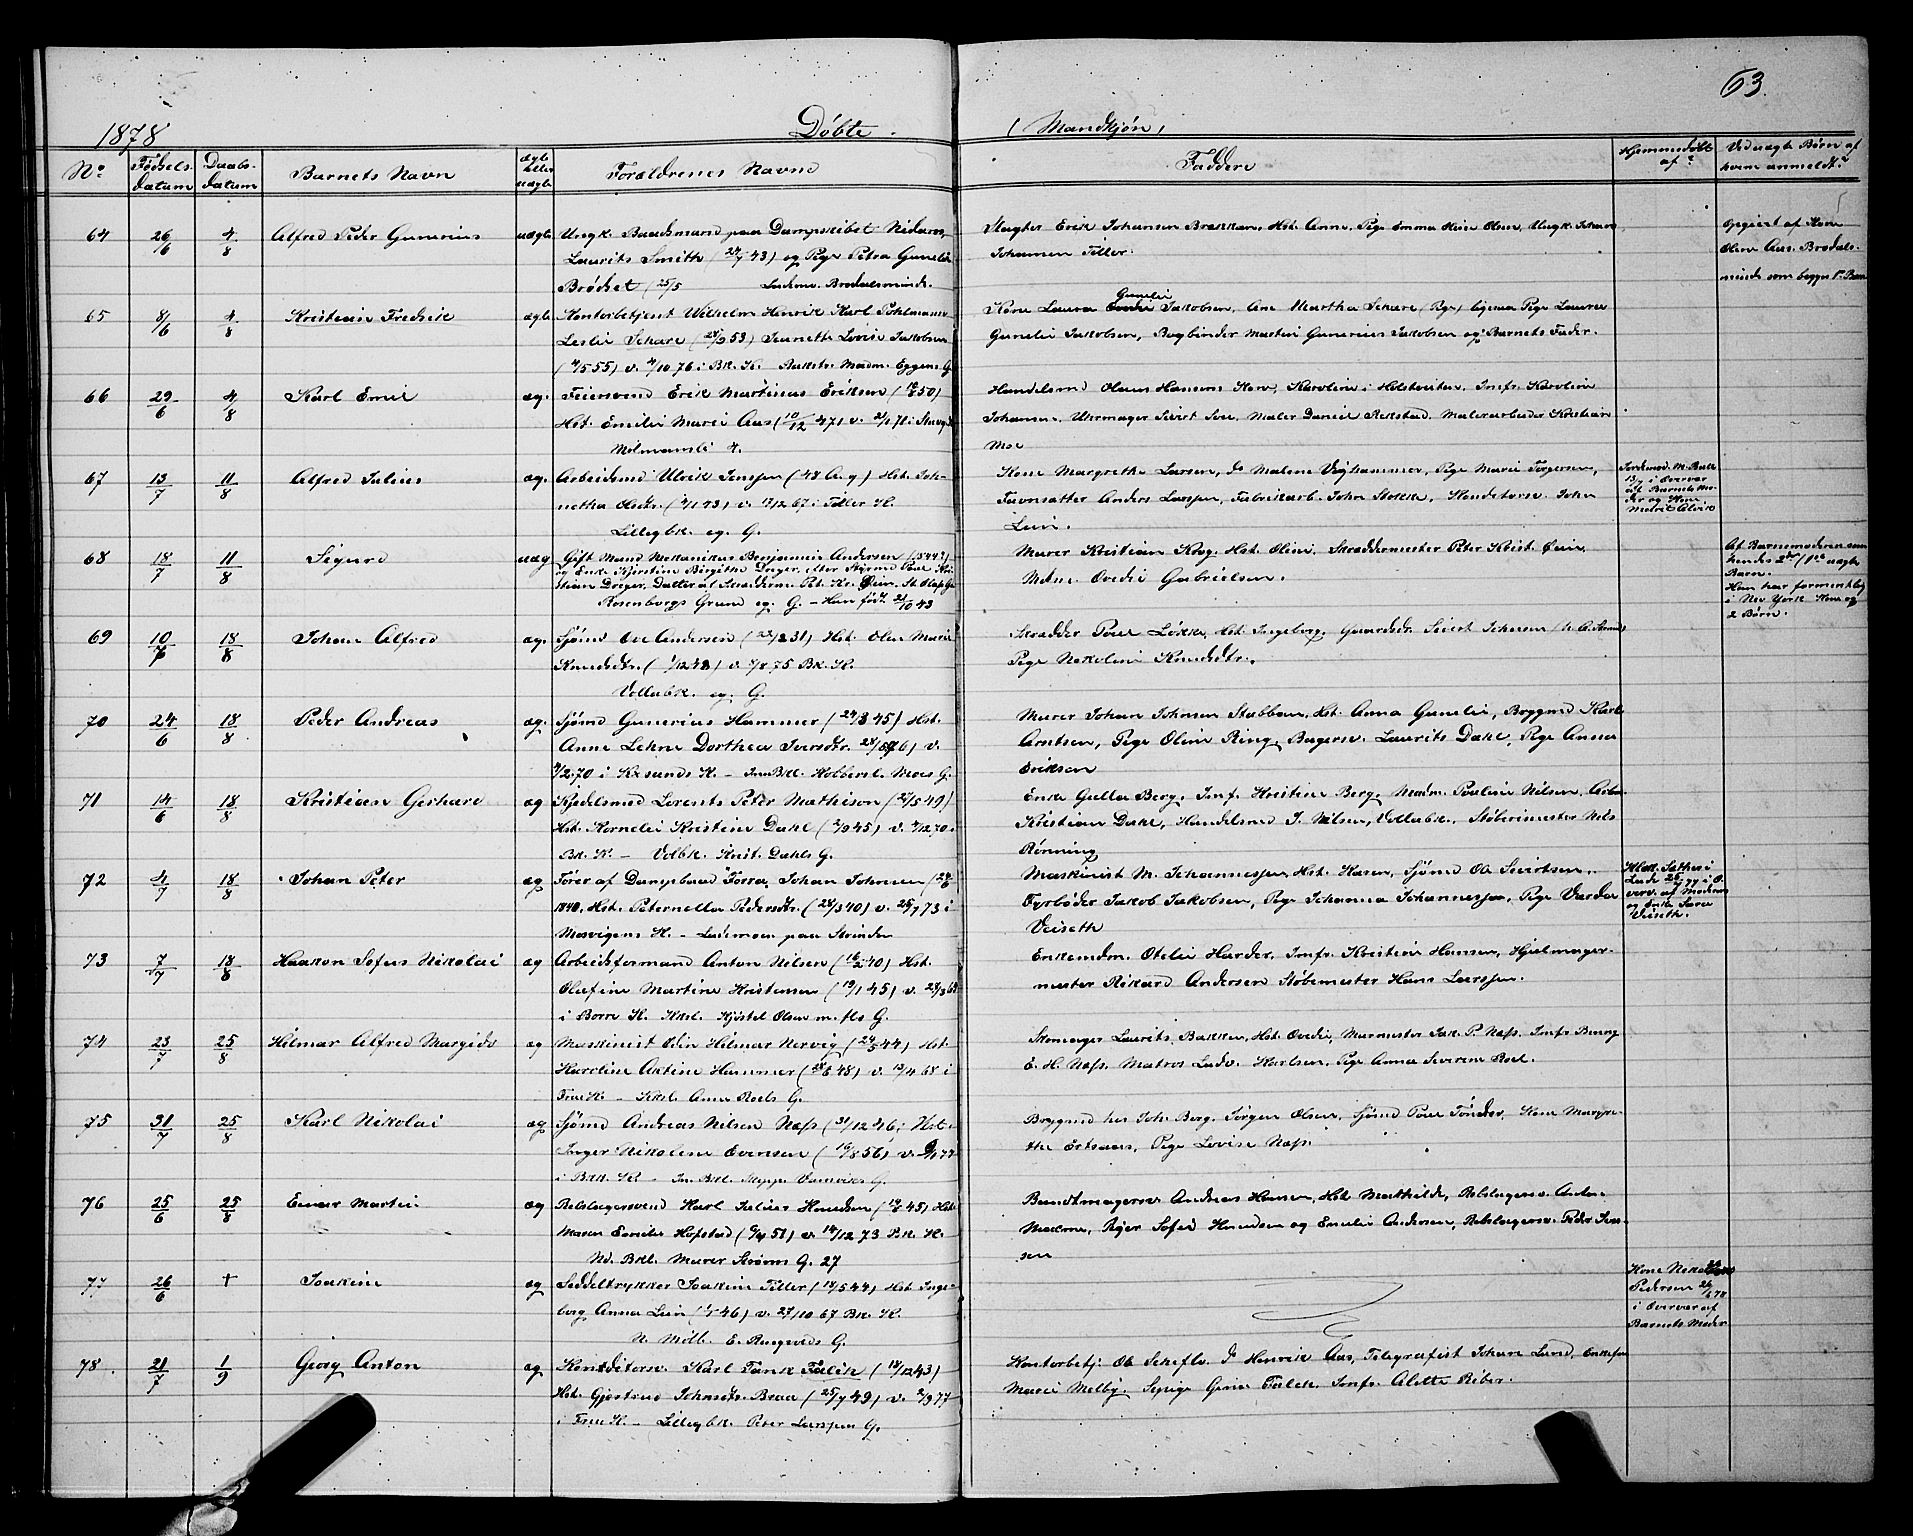 63.
1878 Døbte. (Mandkjøn)
No Fødsels-datum Daabs-datum Barnets Navn ægte eller uægte Forældrenes Navne Faddere Hjemmedøbt af? Ved uægte Børn af hvem anmeldt?
64 26/6 4/8 Alfred Peder Gunerius uægte Ungk. Baadsmand paa Dampskibet Nidaros,
Laurits Smith ( 43) og Pige Petra Gunelie
Brødset (25/5 Ladem. Brodalsminde.
Slagter Erik Johansen Brækkan, Hst. Anne, Pige Emma Oline Olsen, Ungk. Johan
Johansen Tiller.
Opgivet af Kone
Oline Aas. Brodals-
minde som begges 1ste Barn
65 8/6 4/8 Kristian Fredrik ægte Kontorbetjent Wilhelm Henrik Karl Pohlmann
Leslie Schare ( 53) Jeanette Lovise Jakobsen
(4/5 55) v. 4/10 76 i Bk. K. Bakstr. Madm. Eggens G.
Kone Laura Gunelie Jakobsen, Ane Martha Schare (Pge) ligesaa Pige Laura
Gunelie Jakobsen, Bogbinder Martin Gunerius Jakobsen og Barnets Fader.
66 29/6 4/8 Karl Emil æg. Feiersvend Erik Martinus Eriksen ( 50)
Hst. Emilie Marie Aas (10/12 47) v.
Møllmannsli 4.
Handelsmd Olaus Hansens Kone, Karoline i Holstveiten, Jmfr. Karoline
Johansen, Uhrmager Sivert Soe, Maler Daniel Rekstad, Malerarbeider Kristian
Moe
67 13/7 11/8 Alfred Julius æg. Arbeidsmd Ulrik Jenssen (48 A. g) Hst. Joh-
netha Olsdtr. ( 43) v. 17/12 67 i Tiller K.
Lillegbk. eg. G.
Kone Margrethe Larsen, do Malene Vighammer, Pige Marie Torgersen,
Favnsætter Anders Larssen, Fabrikarb. John Stokke, Handelsm. John
Lein.
Jordemod. M. Buck
13/7 i Overvær
af Barnets Mo-
der og Kone
Marit Alvik
68 18/7 11/8 Sigurd uæg Gift Mand Mekanikus Benjamin Andersen
og Enke Kjerstine Birgithe Dreyer, efter Skipper Poul Kri-
stian Dreyer, Datter af Skrædderm. Pet. Kr. Øien, St. Olafs G.
Rosenborgs Grund eg. G. – Han født 21/10 43
Murer Kristian Krog, Hst. Oline, Skræddermester Peter Krist. Øien,
Madme Ovedie Gabrielsen.
Af Barnemoderen som
hendes 2det 1ste uægte
Barn.
Han har formentlig
i New York Kone og
2 Børn.
69 10/7 18/8 Johan Alfred æg. Sjømd Ole Andersen ( 31) Hst. Oline Marie
Knudsdtr. (1/12 43) v. 75 Bk. K.
Vollabk. eg. G.
Skrædder Poul Løkke, Hst. Ingeborg, Gaardsdr. Sivert Johnsen
Pige Nikoline Knudsdtr.
70 24/6 18/8 Peder Andreas æg. Sjømd Gunerius Hammer (24/3 45) Hst.
Anne Lehne Dorthea Iversdtr. v.
70 i Krsunds K. – Inn Bkl. Holberst. Moes G.
Murer Johan Johnsen Stubban, Hst. Anna Gunelie, Brygmd Karl
Arntsen, Pige Oline Ring, Bagersv. Laurits Dahl, Pige Anna
Eriksen
71 14/6 18/8 Kristian Gerhard æg Kjedelsmed Lorents Peter Mathison (27/5 49)
Hst. Kornelie Kristine Dahl (2/9 45) v. 12 70 i
Bk. K. – Volbk. Krist. Dahls G.
Enke Gulla Berg, Jmf. Kristine Berg, Madm. Pauline Nilsen, Arbm
Kristian Dahl, Handelsmd J. Nilsen, Vollabk., Støberimester Nils
Rønning
72 4/7 18/8 Johan Peter æg Fører af Dampbaad "Forra, Johan Johnsen (
1840. Hst. Peternella Pedersdtr. ( 40) v. 73 i
Mosvigens K. – Lademoen paa Strinden
Maskinist M. Johannessen, Hst. Hasen, Sjømd Ole Sivertsen,
Fyrbøder Jakob Jakobsen, Pige Johanna Johannessen, Pige Vardea
Veiseth
Klok. Sæther i
Lade i O-
verv. af Moderen
og Enke Sara
Veiseth.
73 7/7 18/8 Haakon Sofus Nikolai æg Arbeidsformand Anton Nilsen ( 40) Hst.
Olafine Martine Kristensen (19/1 45) v.
i Borre K. Kkl. Kjøstel Olsen m. fls G.
Enkemdm. Otelie Harder, Jmfr. Kristine Hansen, Hjulmager-
mester Rikard Andersen Støbemester Hans Larssen.
74 23/7 25/8 Hilmar Alfred Margido æg Maskinist Odin Hilmar Nervig ( 44) Hst.
Karoline Aktine Hammer ( 48) v. 12/4 68 i
Frue K. – Kkl. Anna Roels G.
Skomager Laurits Bakken, Hst. Ovedie, Murmester Jak. P. Næss, Jmfr. Benny
E. H. Næss, Matros Ludv. Karlsen, Pige Anna Severine Roel.
75 31/7 25/8 Karl Nikolai æg Sjømd Andreas Nilsen Næss (31/12 46, Hst.
Inger Nikoline Evensen (16/8 56) v. 77
i Bk. K. – Inn Bkl. Skipper Vanvigs G.
Brygmd hos Joh. Berg, Jørgen Olsen, Sjømd Poul Tønder, Kone Margre-
the Ertsaas, Pige Lovise Næss.
76 25/6 25/8 Einar Martin æg Rebslagersvend Karl Julius Knudsen ( 45) Hst
Maren Emilie Hofstad ( 51) v. 14/12 73 Bk. K.
Nd. Bkl. Murer Strøms G. 27
Bundtmagersv. Andreas Hansen, Hst. Mathilde, Rebslagersv. Anton
Malone, Piger Sofie Knudsen og Emilie Andersen, Rebslagersv. Peder Iver-
sen
77 26/6 + Joakim æg Seddeltrykker Joakim Tiller (18/5 44) Hst. Inge-
borg Anna Lein ( 46) v. 27/10 67 Bk. K.
N. Møllb. E. Ringvolds G.
Kone Nikoline
Pedersen 26/6 78
i Overvær af
Barnets Moder
78. 21/7 1/9 Georg Anton æg Konditorsv. Karl Tank Falck (14/12 43)
Hst. Gjertrud Johnsdtr. Braa (25/7 49) v. 2/9 77
i Frue K. – Lillegbk. Peter Larssen G.
Kontorbetj. Ole Schefte, do Henrik Aas, Telegrafist Johan Lund, Enkefru
Marie Melby, Sypige Gine Falck, Jmfr. Alette Riber.